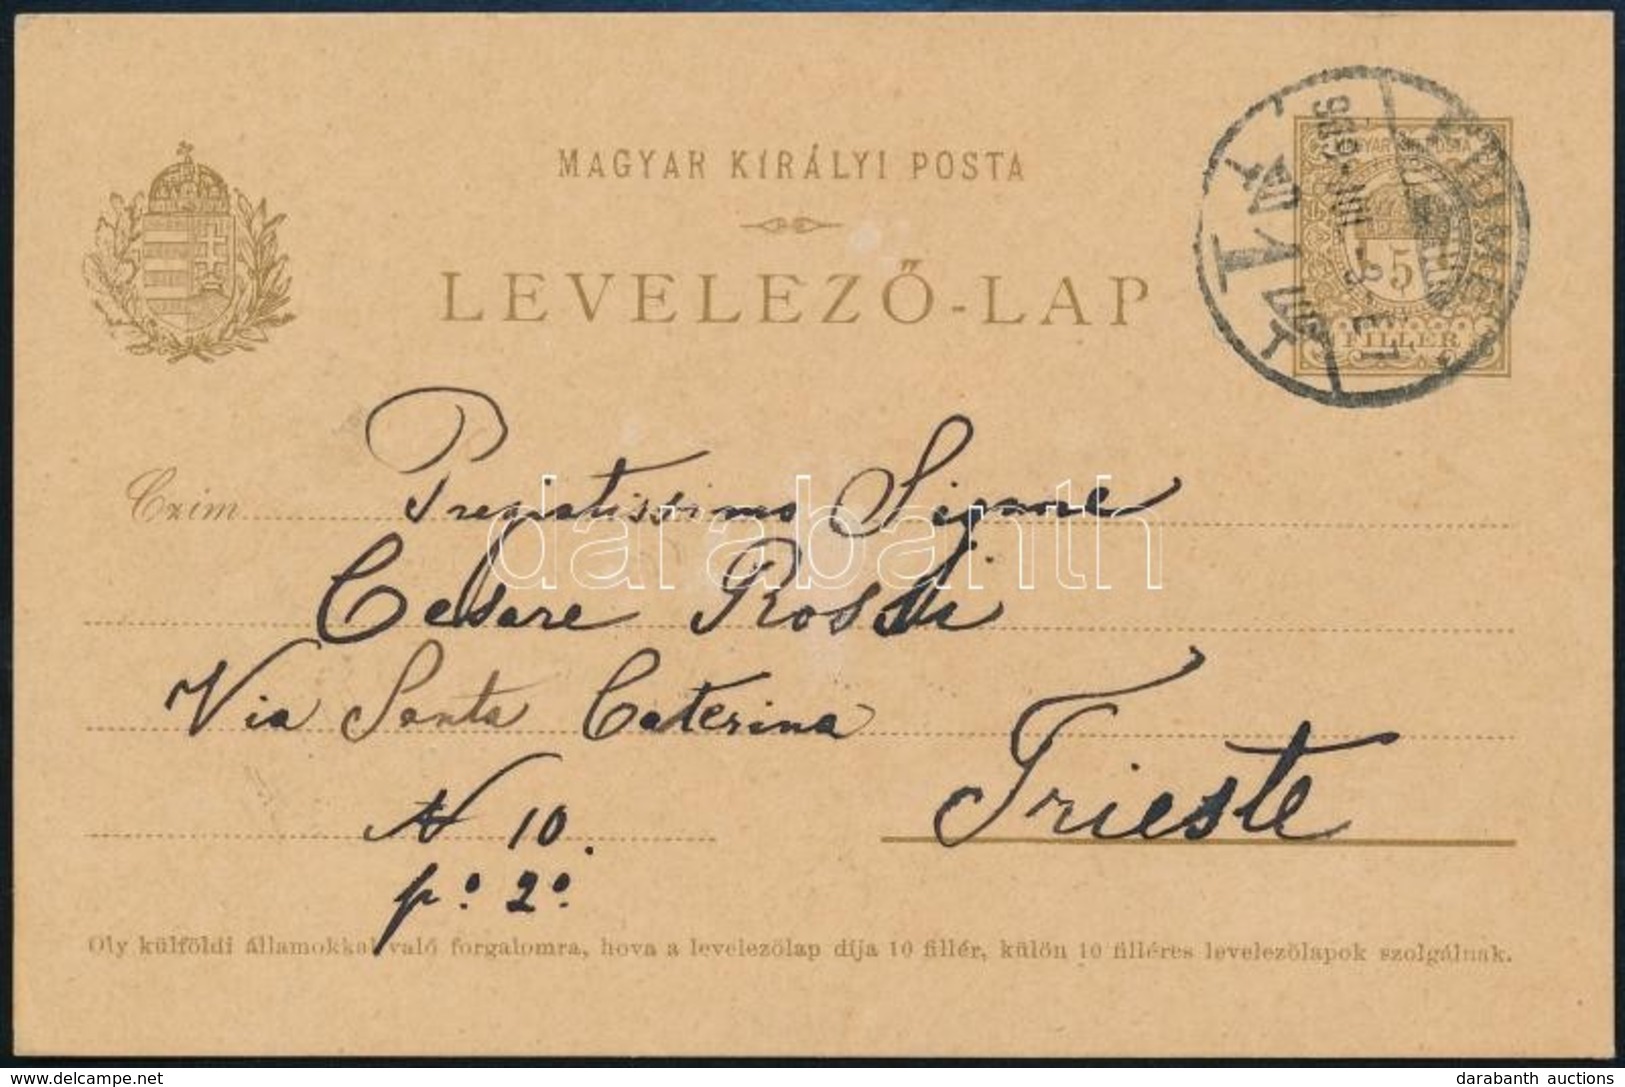 MAGYAR KIRÁLYI POSTA
LEVELEZŐ-LAP
FIUME
5
FILLÉR
Czim
Pregiatissimo Signore
Cesare Rossi
Via Santa Caterina
N 10.
pº 2º
Trieste
Oly külföldi államokkal való forgalomra, hova a levelezőlap díja 10 fillér, külön 10 filléres levelezőlapok szolgálnak.
darabanth
delcampe.net
darabanth auctions